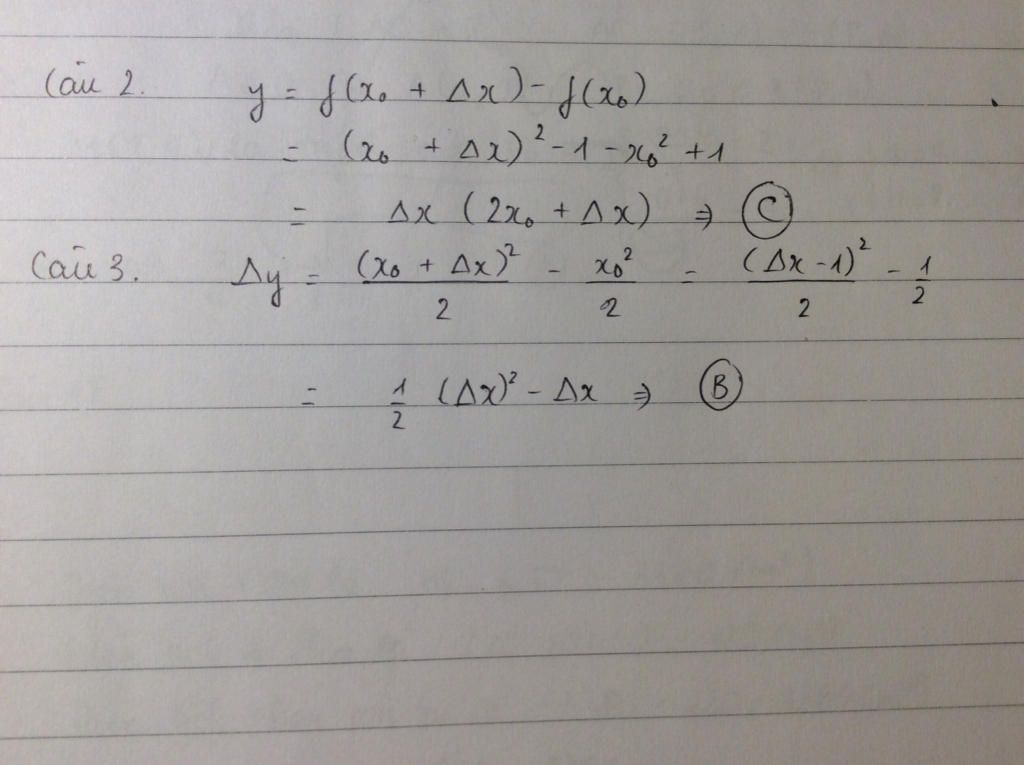 Câu 2. y = f(x₀ + Δx) - f(x₀)
= (x₀ + Δx)² - 1 - x₀² + 1
= Δx (2x₀ + Δx) ⇒ C
Câu 3. Δy = (x₀ + Δx)²/2 - x₀²/2 - (Δx - 1)²/2 - 1/2
= 1/2 (Δx)² - Δx ⇒ B